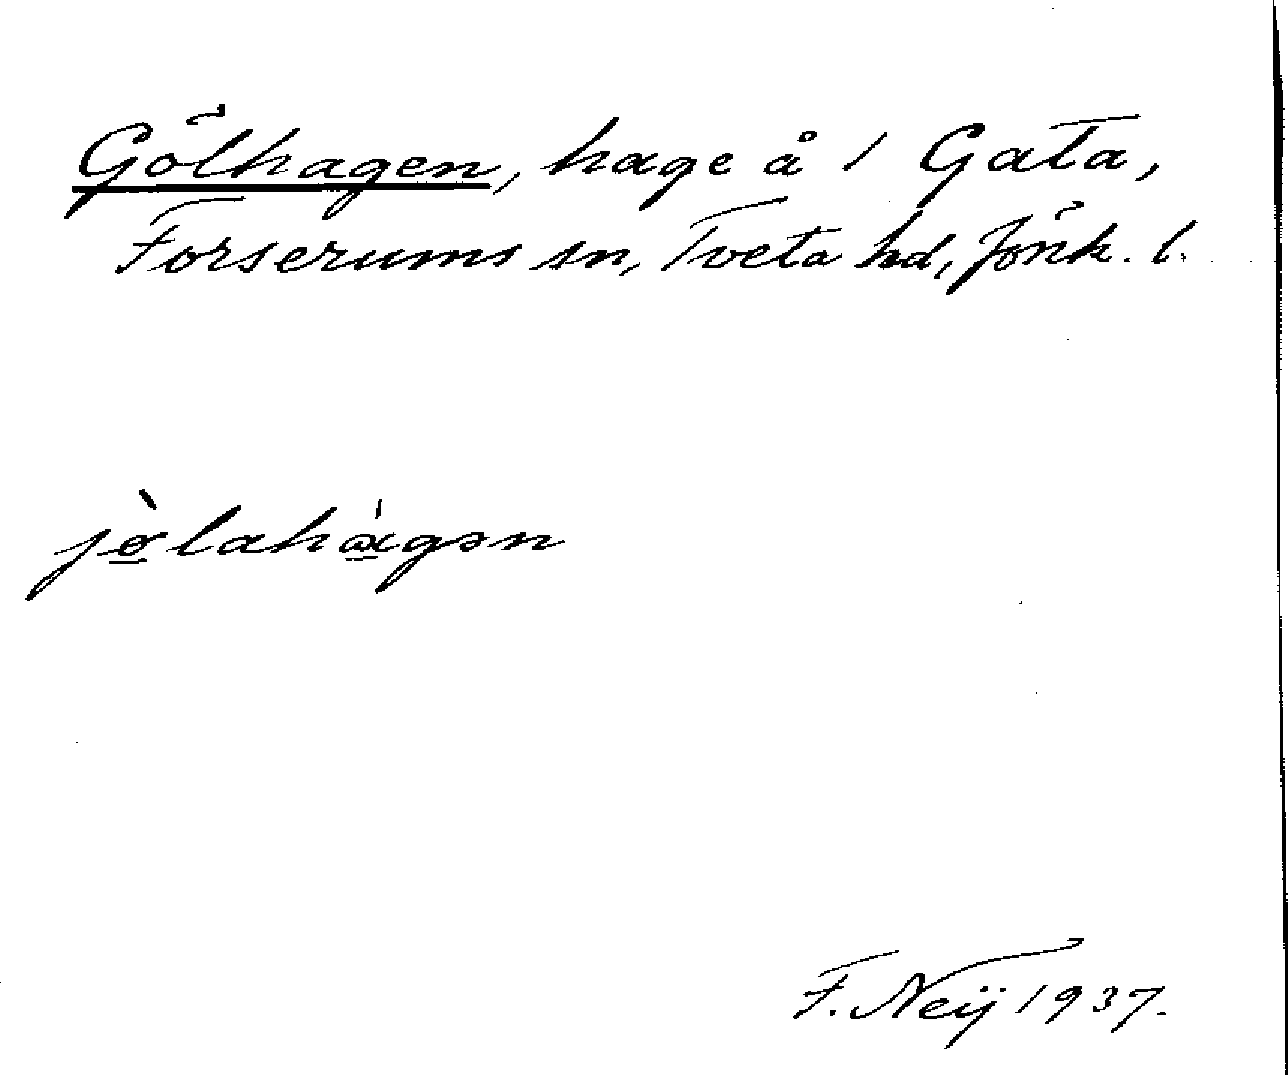 Gölhagen, hage å 1 Gata,
Forserums sn, Tveta hd, Jönk. l.
jø̀lahàgən
F. Neij 1937.